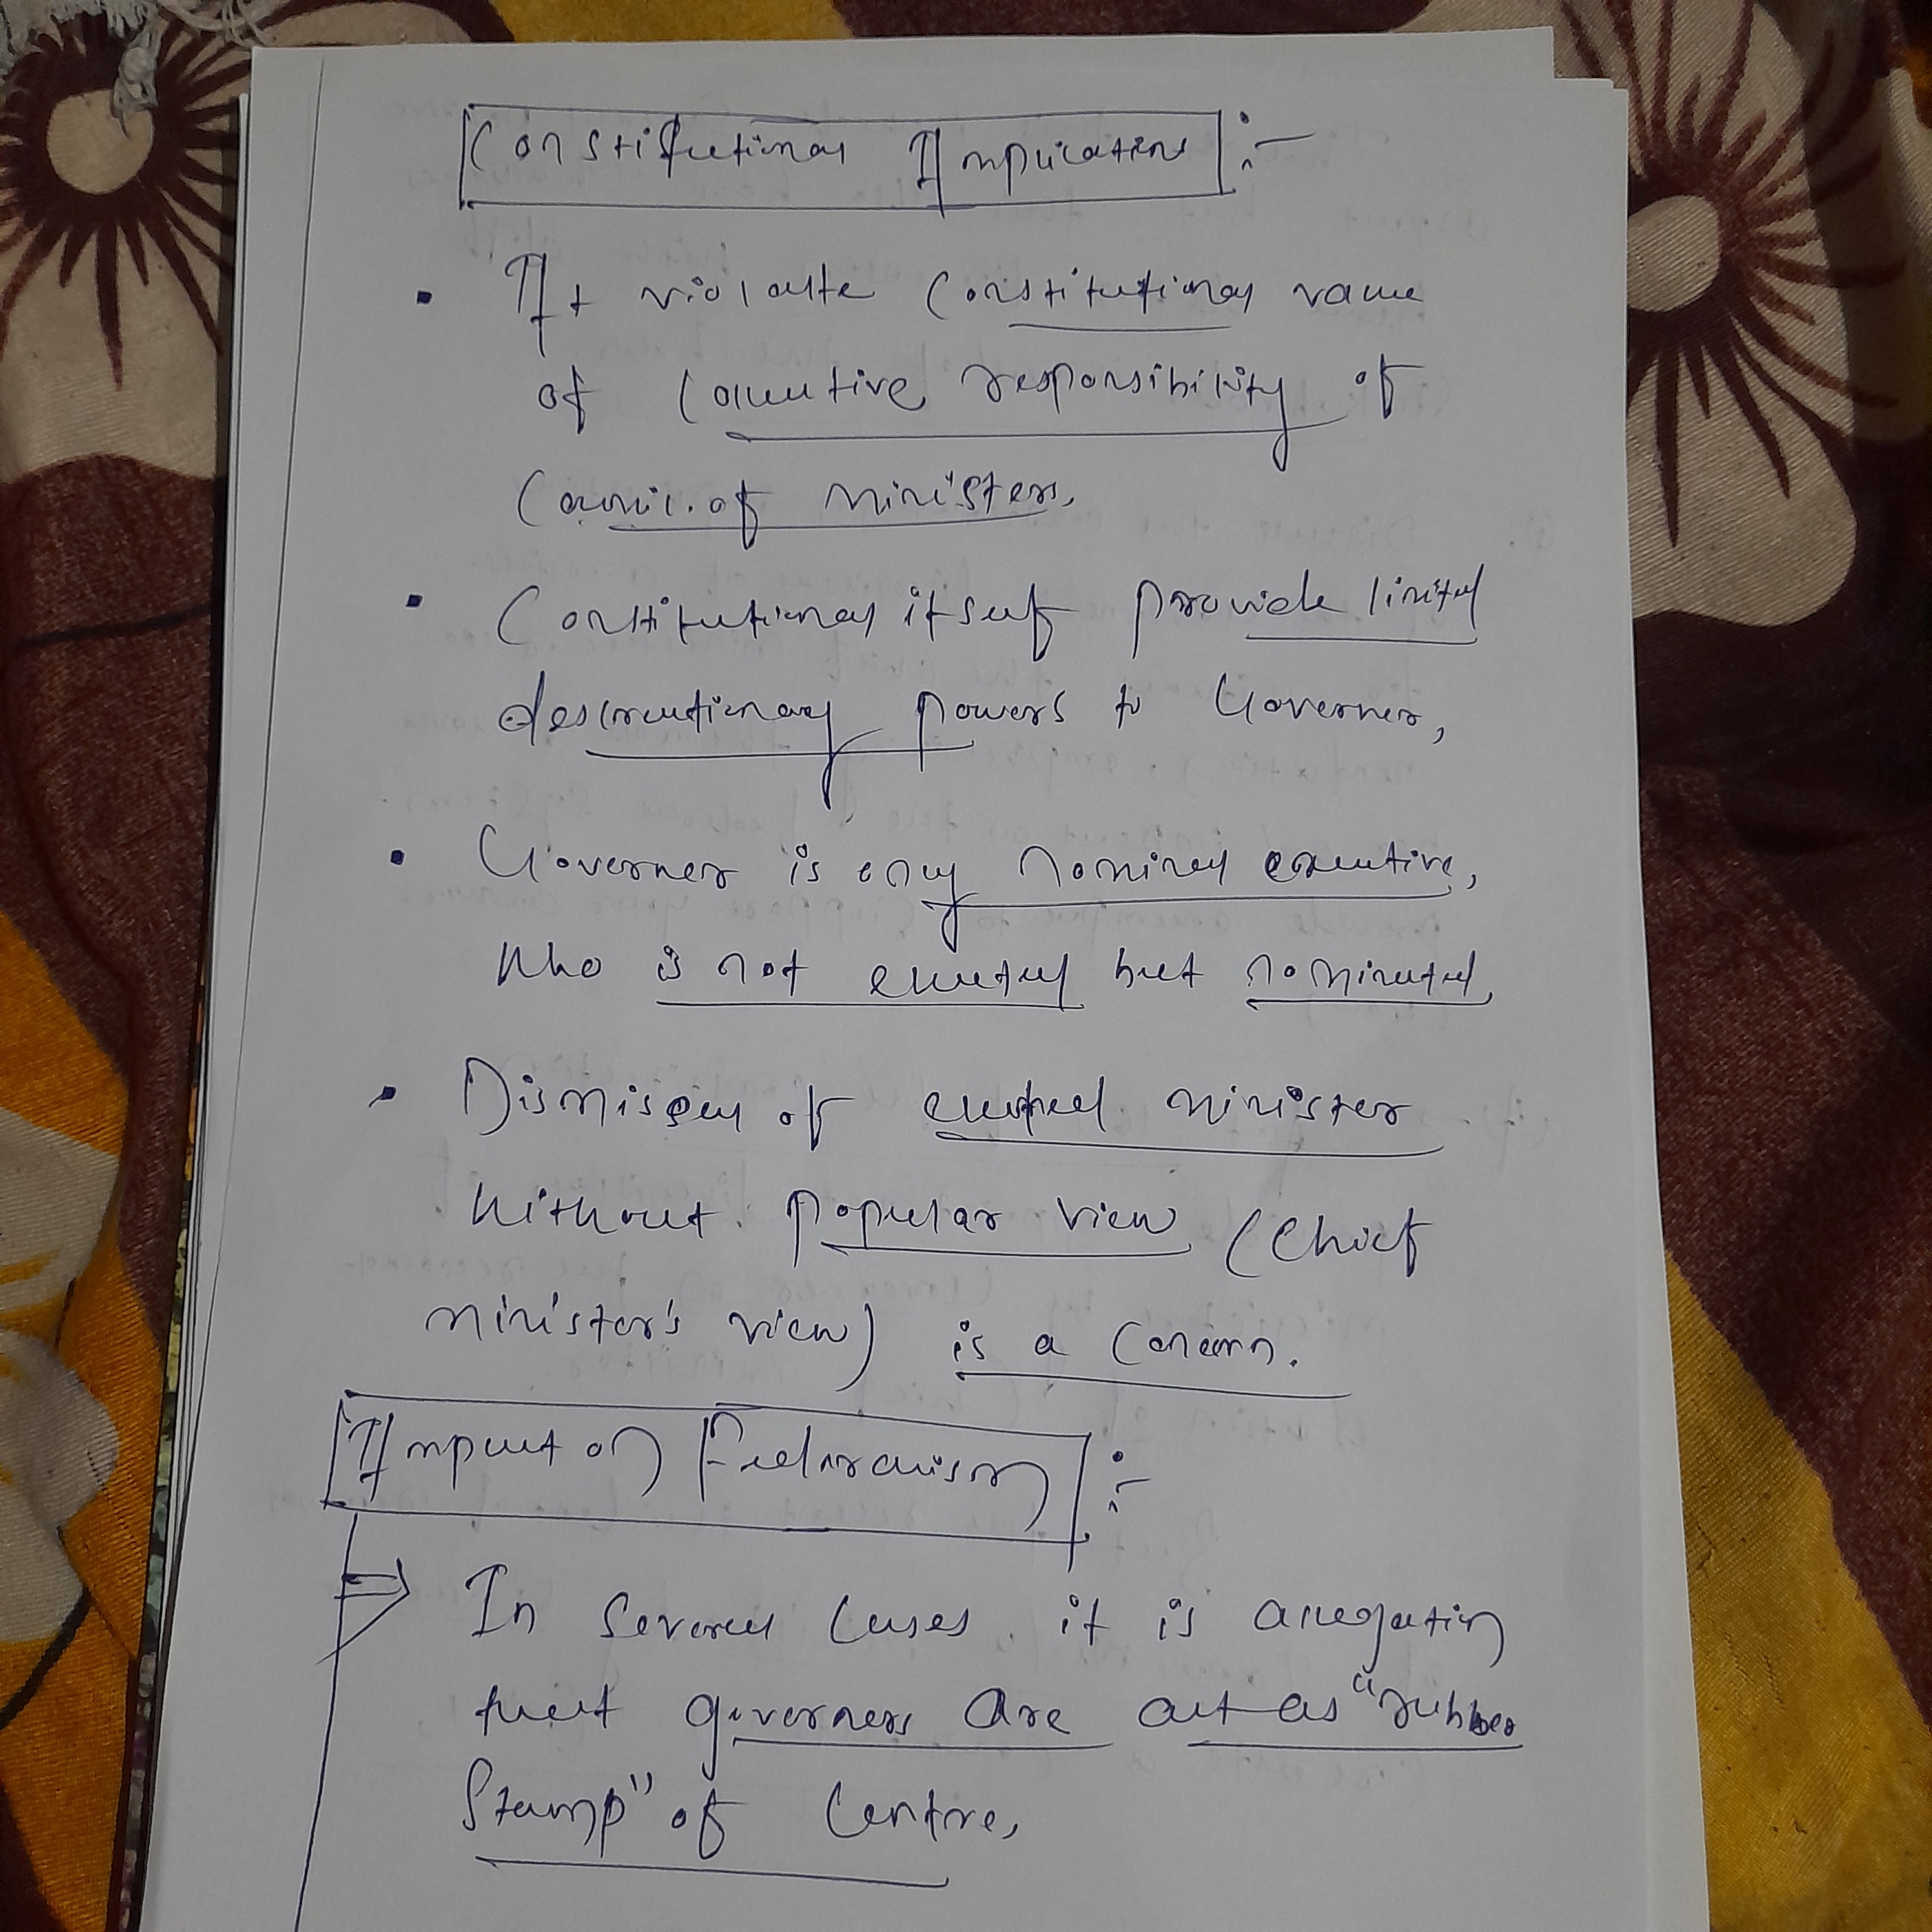 Constitutional Implications :-
• It violate Constitutional value
of Collective responsibility of
Council of ministers.
• Constitutional itself provide limited
descreutionary powers to Governer,
• Governer is only Nominal executive,
who is not elected but nominated,
• Dismissal of elected minister
without popular view (Chief
minister's view) is a Concern.
Impact on Federalism :-
⇒ In several cases. it is allegatin
that governers are act as "rubber
Stamp" of Centre,